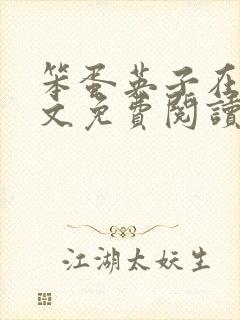 笨蛋英子在
文免費閱讀
江湖太妖生